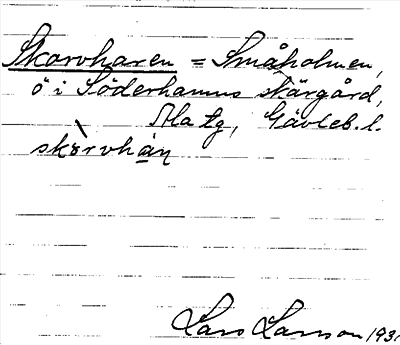 Skorvharen = Småholmen,
ö i Söderhamns skärgård,
Ala tg, Gävleb. l.
skòrvhàn
Lars Larsson 193